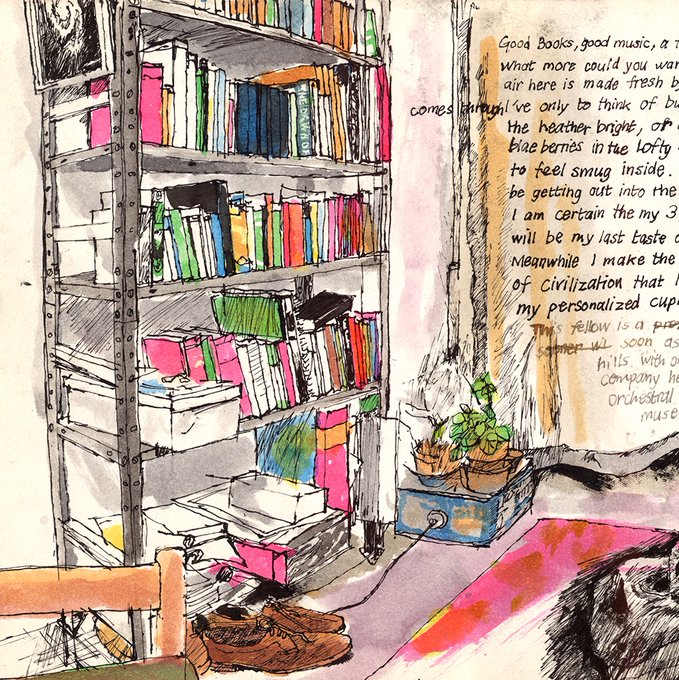 Good Books, good music, a
what more could you wan
air here is made fresh by
comes through I've only to think of bu
the heather bright, or
blae berries in the lofty
to feel smug inside.
be getting out into the
I am certain the my 3
will be my last taste o
Meanwhile I make the
of Civilization that I
my personalized cup
This fellow is a pro
sooner wi soon as
hills with
company he
orchestral
muse